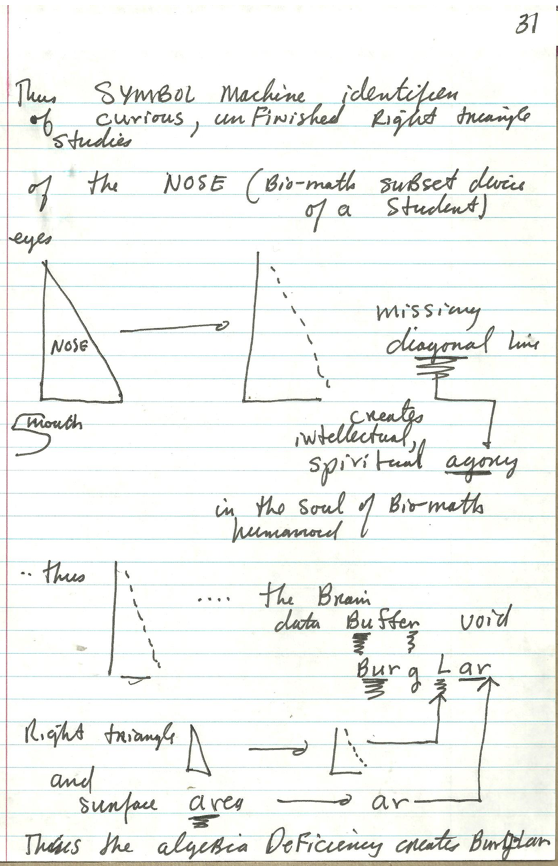 31
Thus SYMBOL Machine identifies
of curious, unFinished Right triangle
studies
of the NOSE (Bio-math subset device
of a Student)
eyes
NOSE
missing
diagonal line
mouth
creates
intellectual,
spiritual agony
in the soul of Bio-math
humanoid
.. thus
.... the Brain
data Buffer void
Bur g L ar
Right triangle
and
surface area ar
Thus the algebra DeFiciency creates Burglar